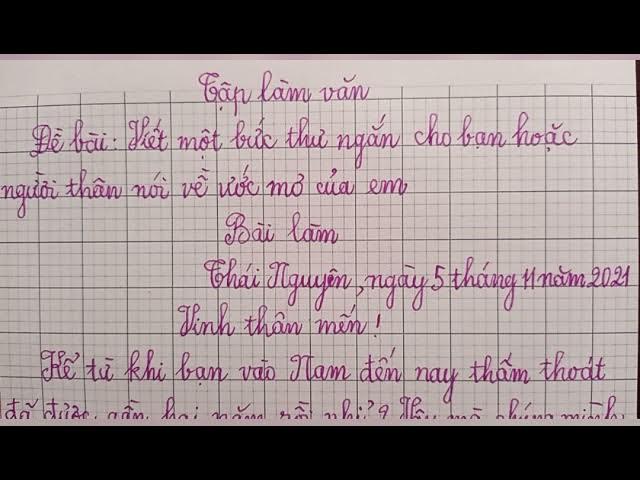 Tập làm văn
Đề bài: Viết một bức thư ngắn cho bạn hoặc
người thân nói về ước mơ của em
Bài làm
Thái Nguyên, ngày 5 tháng 11 năm 2021
Vinh thân mến!
Kể từ khi bạn vào Nam đến nay thấm thoát
đã được gần hai năm rồi nhỉ? chúng mình